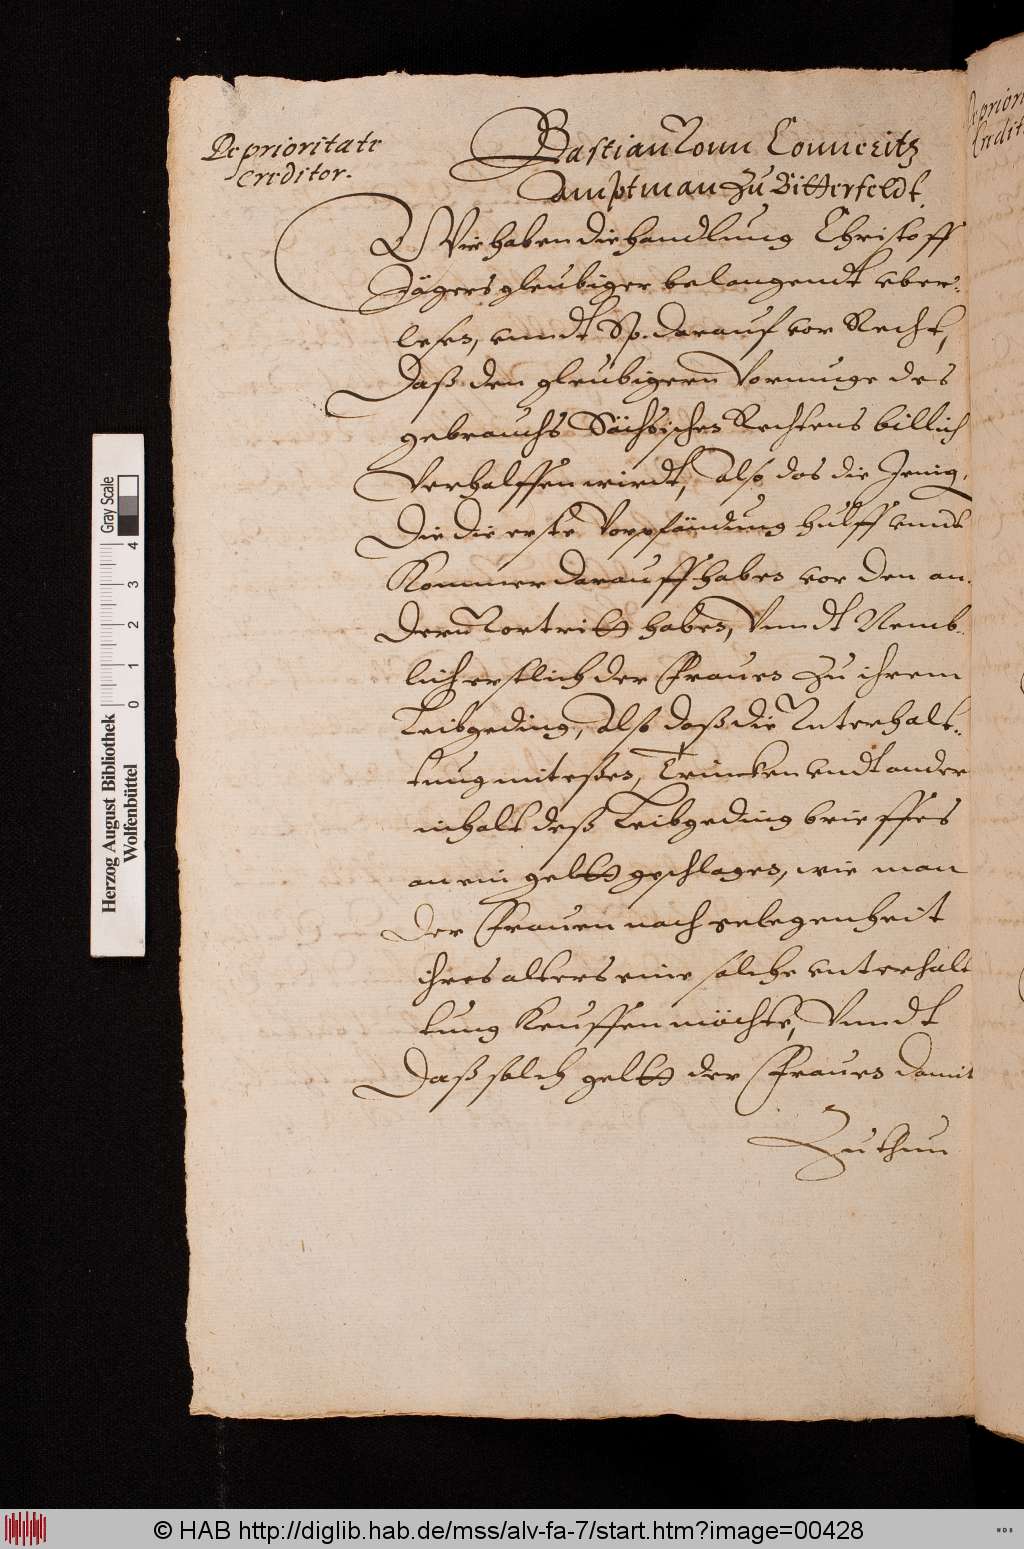 De prioritate
Creditor.
Bastian Vonn Conneritz
Amptman zu Bitterfeldt.
Wir haben die handlung Christoff
Jägers gleubiger belangendt vber-
lesen, vnndt Sp. darauf vor Recht,
Daß den gleubigern Vormuge des
gebrauchs Sächsischen Rechtens billich
Verholffen wirdt, also das die Jenig,
Die die erste Vorpfändung hülff vnnd
Kommer darauff haben vor den an-
dern Vortritt haben, Vnndt Nemb-
lich erstlich der Frauen zu ihrem
Leibgeding, also daß die Vnterhalt-
tung mit eßen, Trincken vndt ander
inhalt deß Leibgeding brieffes
an ein geltt geschlagen, wie man
Der Frauen nach gelegenheit
ihres alters eine solche vnterhalt
tung Keuffen möchte, Vnndt
Daß solch geltt der Frauen damit
Zu thun
De priori
Credit
Gray Scale
0 1 2 3 4
Herzog August Bibliothek
Wolfenbüttel
© HAB http://diglib.hab.de/mss/alv-fa-7/start.htm?image=00428